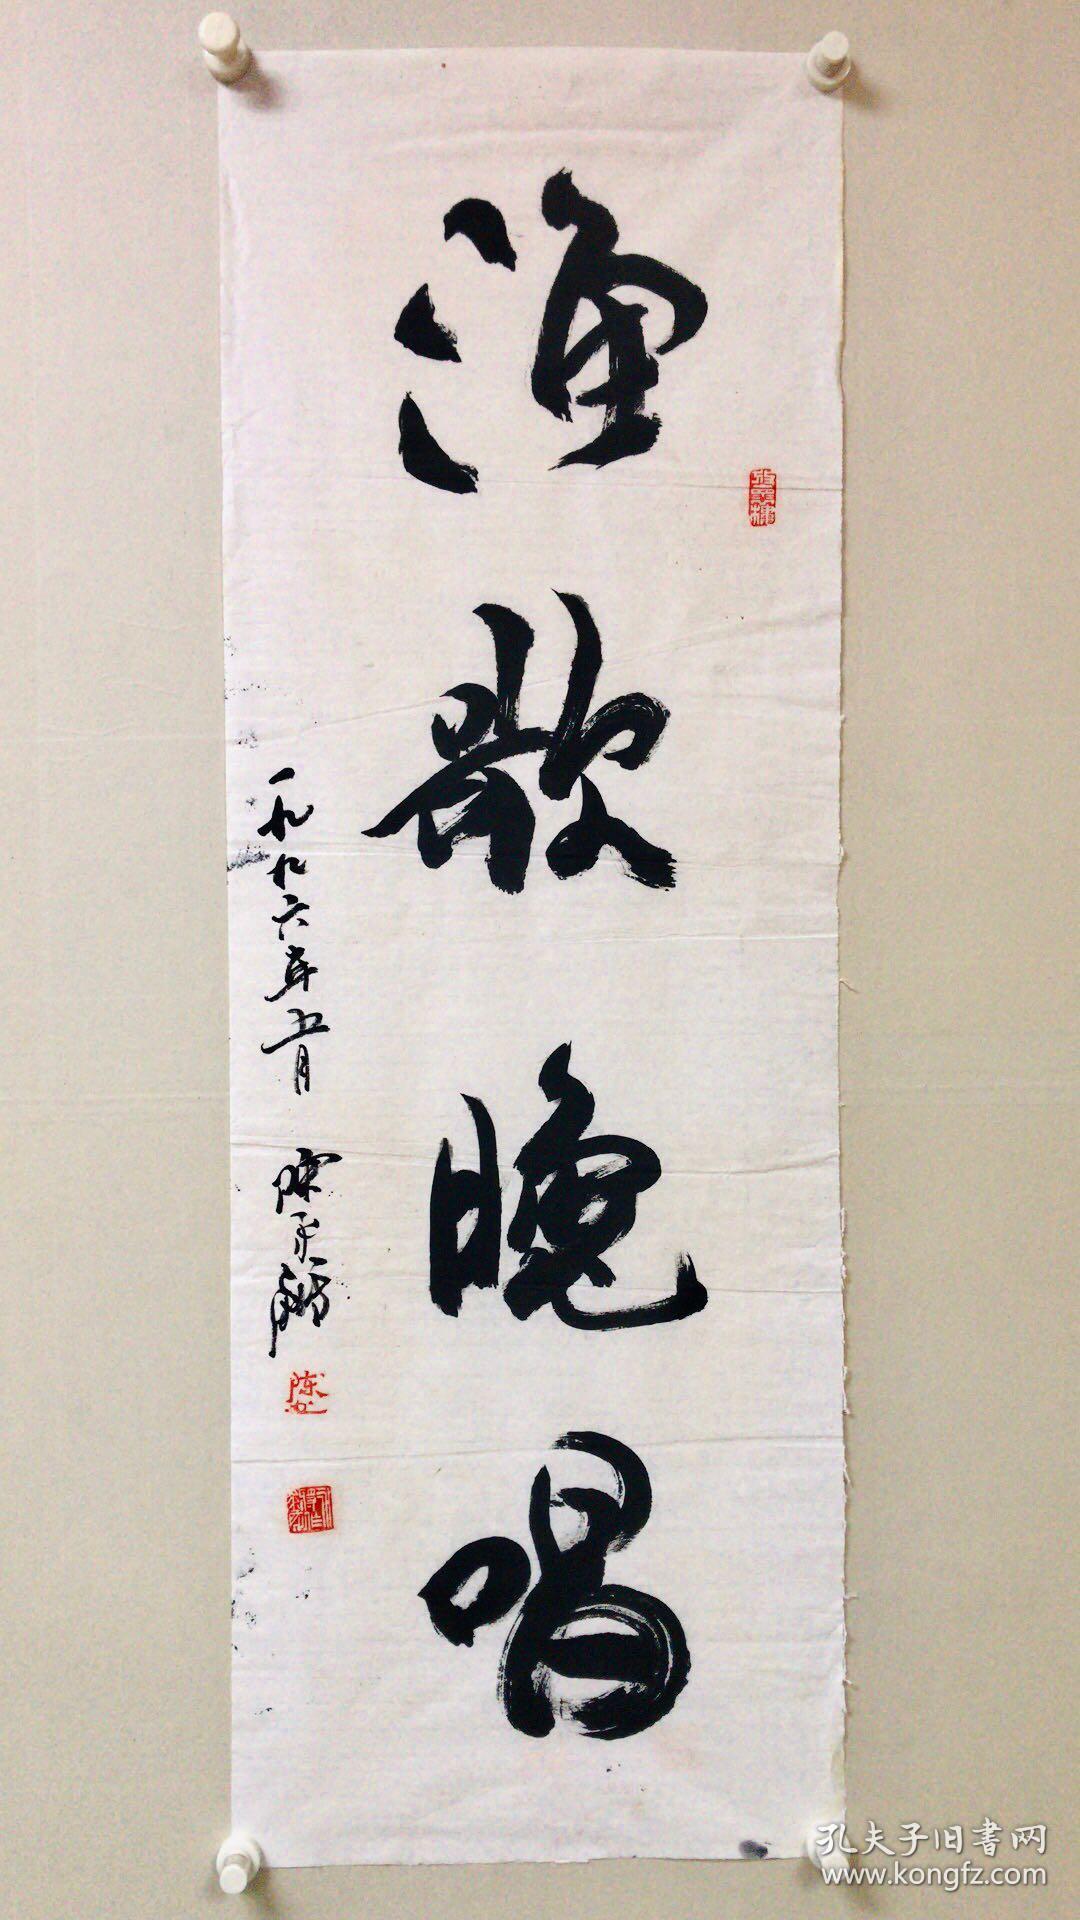 渔歌晚唱
一九九六年五月 陈
陈
孔夫子旧书网
www.kongfz.com